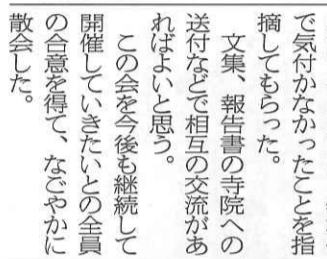 で気付かなかったことを指
摘してもらった。
　文集、報告書の寺院への
送付などで相互の交流があ
ればよいと思う。
　この会を今後も継続して
開催していきたいとの全員
の合意を得て、なごやかに
散会した。